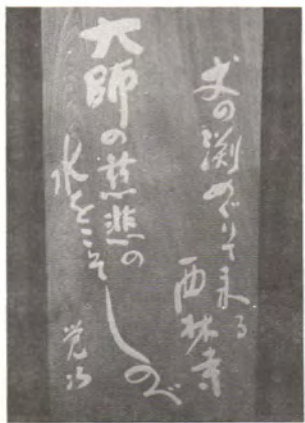 丈の渕めぐりて来る
西林寺
大師の慈悲の
水をこそ
しのべ